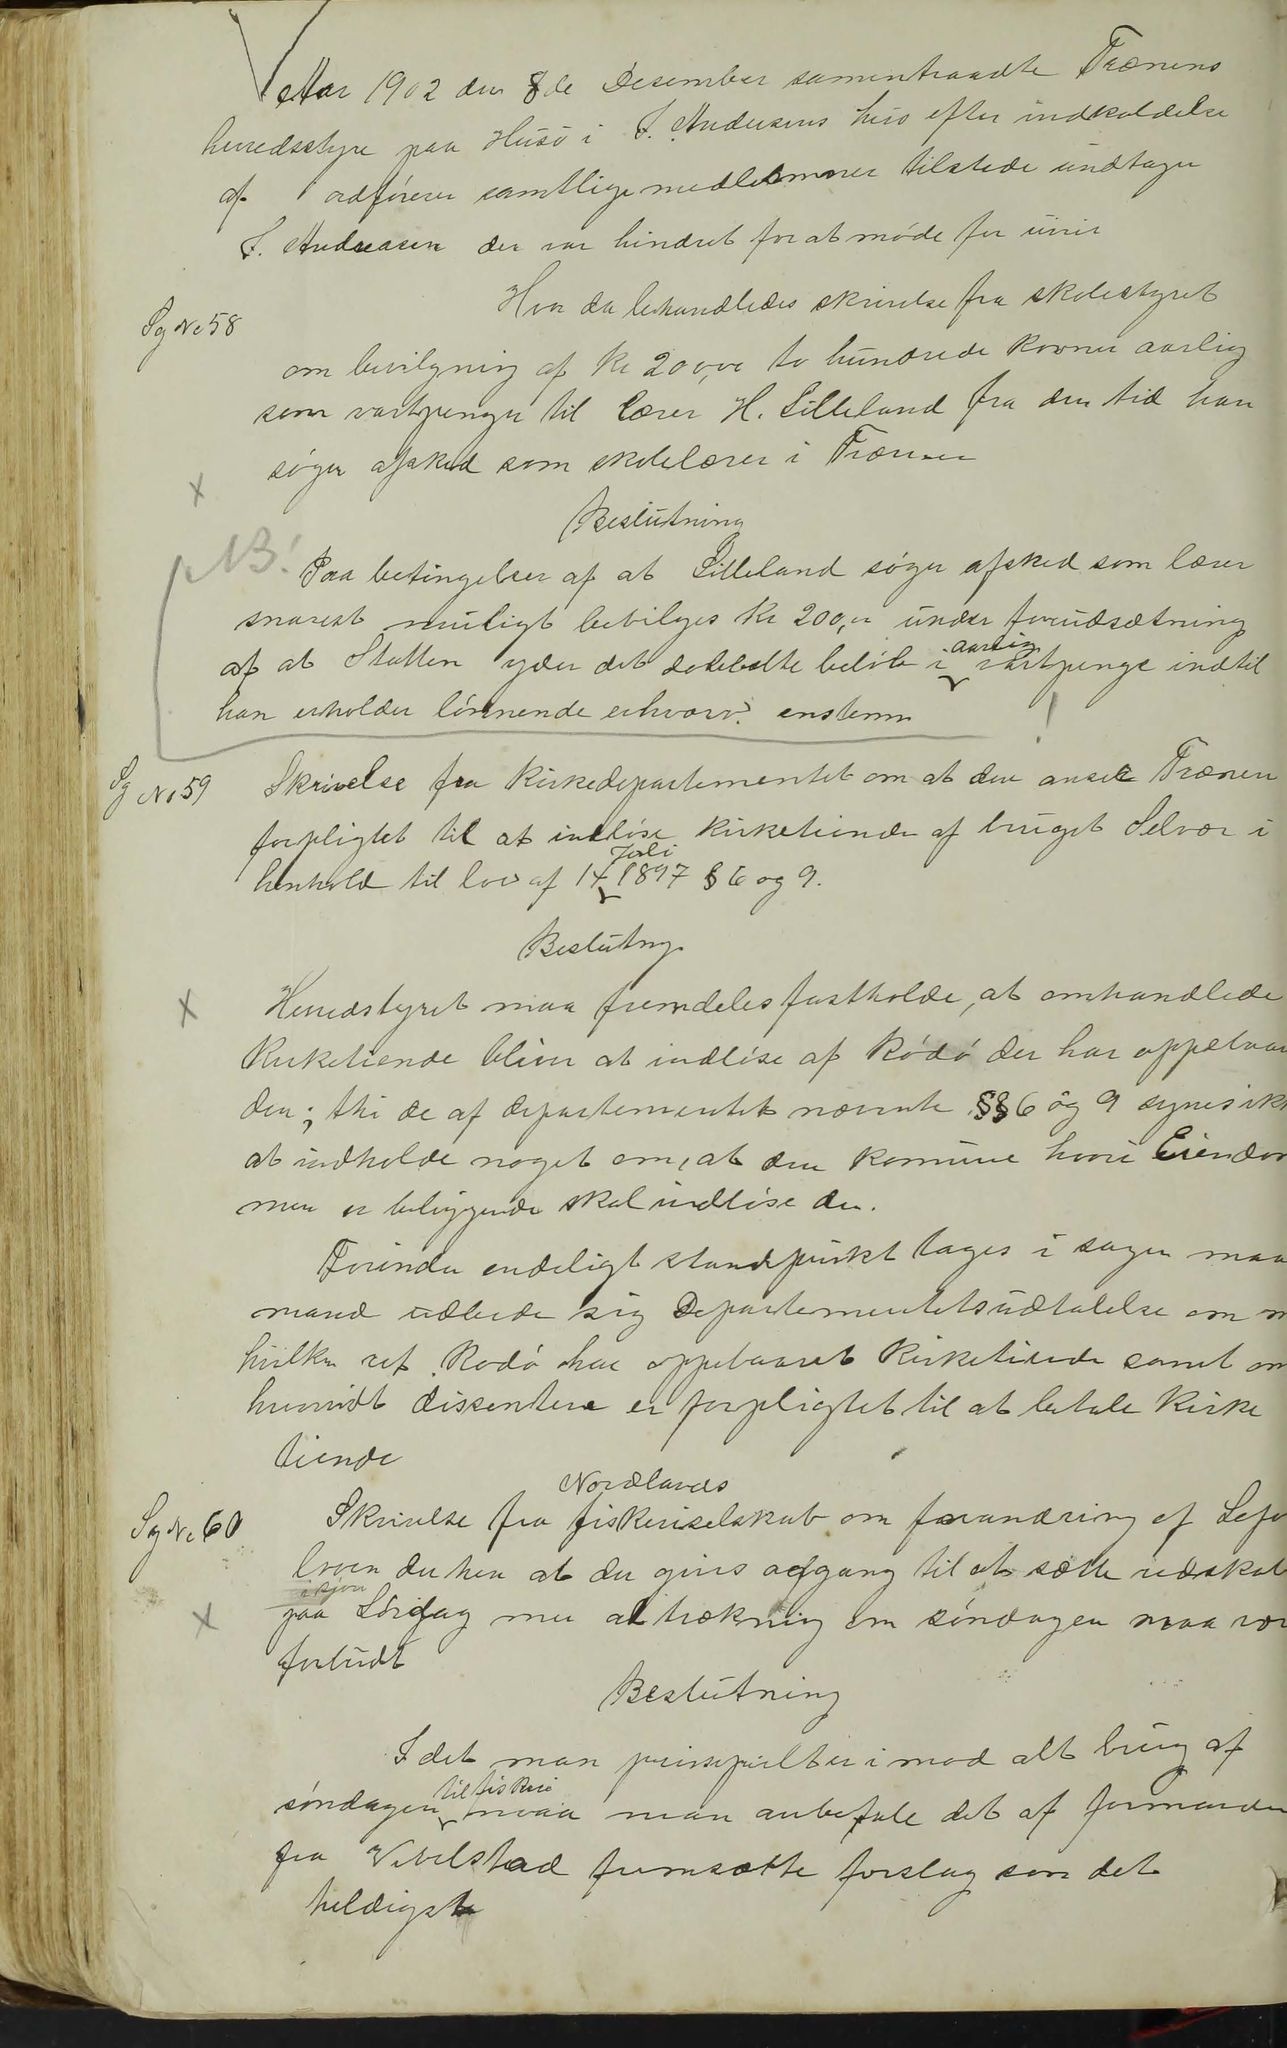 Aar 1902 den 8de Desember samentraadte Trænens
herredsstyre paa Husö i J. Andersens hus efter indkaldelse
af ordförerer samtlige medlemmer tilstede undtagen
J. Andreasen der var hindret for at møde for uveir
Sg No 58
Hvor da behandledes skrivelse fra skolestyret
om bevilgning af Kr 200,00 to hundrede kroner aarlig
som vartpenger til lærer H. Lilleland fra den tid han
söger afsked som skolelærer i Trænen
Beslutning
NB!
Paa betingelser af at Lilleland söger afsked som lærer
snarest muligt bevilges Kr 200,00 under forudsætning
af at Statten yder det dobbelte beløb i aarlig vartpenge indtil
han erholder lönnende erhverv. enstem
Sg No 59
Skrivelse fra Kirkedepartementet om at den anser Trænen
forpligtet til at indlöse Kirketiende af bruget Selvær i
henhold til lov af 14 Juli 1897 § 6 og 9.
Beslutng
Herredstyret maa fremdeles fastholde, at omhandlede
Kirketiende bliver at indlöse af Rödö der har oppebaar
den; thi de af departementet nævnte §§ 6 og 9 synes ikk
at indholde noget om, at den komune hvori Eiendom
men er beliggende skal indlöse den.
Forinden endeligt standpunkt tages i sagen maa
mand udbede sig Departementets udtalelse om m
hvilken ret Rodö har oppebaaret Kirketiende samt om
hvorvidt dissentere er forpligtet til at betale Kirke
tiende
Sg No 60
Skrivelse fra Nordlands fiskeriselskab om forandring af Lofo
loven der hen at der givis adgang til at sætte redskab
i sjøen
paa Lördag men at trækning om söndagen maa vær
forbudt
Beslutning
I det man prinsipielt er i mod alt brug af
söndagen til fiskeri maa man anbefale det af formanden
fra Vevelstad fremsatte forslag som det
heldigste